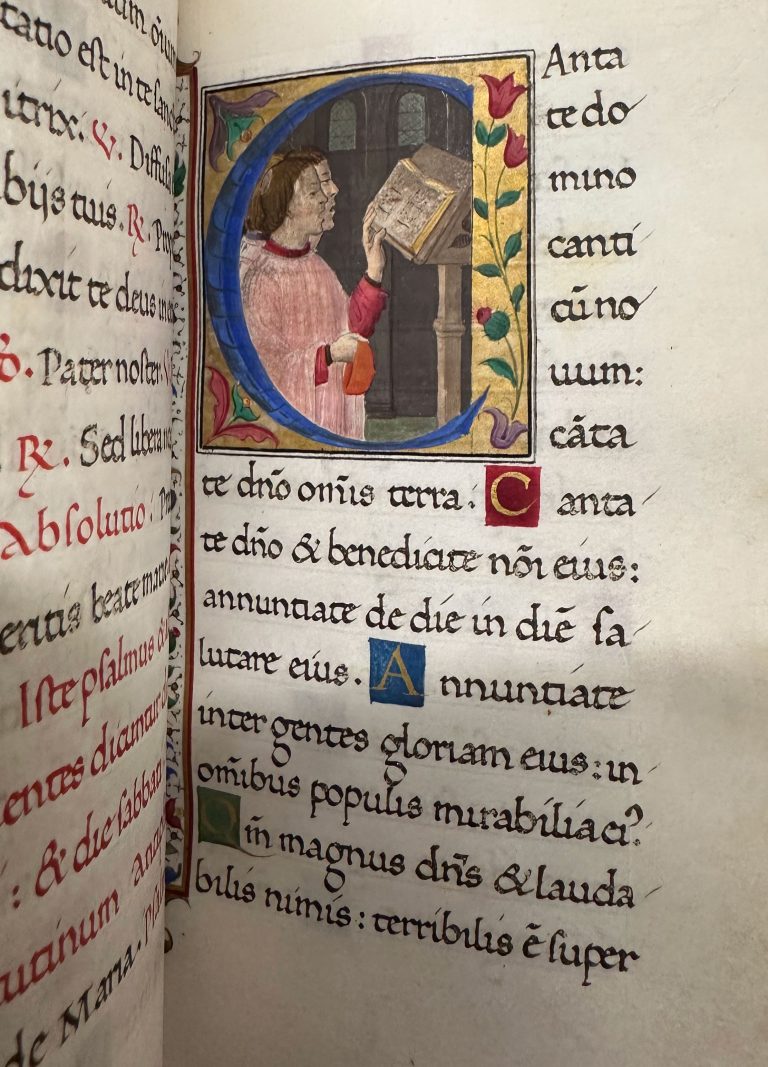 tatio est in te san
itrix. ℣. Diffusa
bijs tuis. ℟.
dixit te deus in
Pater noster
℟. Sed libera
Absolutio.
eritis beate marie
Iste psalmus
entes dicuntur
: & die sabbati
utinum
de Maria.
CAnta
te do
mino
canti
cũ no
uum:
cãta
te dño om̃is terra. Canta
te dño & benedicite nõi eius:
annuntiate de die in diẽ sa
lutare eius. Annuntiate
inter gentes gloriam eius: in
om̃ibus populis mirabilia ei?
Qm̃ magnus dñs & lauda
bilis nimis: terribilis ẽ super